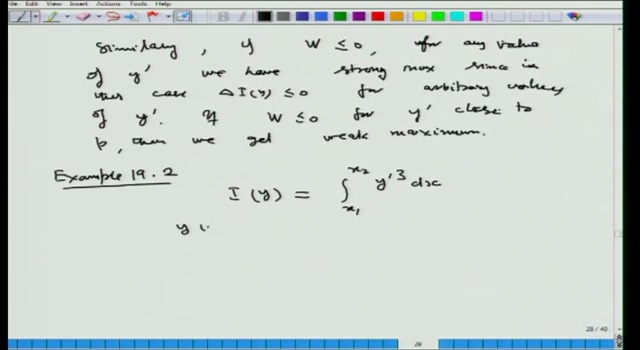 View Insert Actions Tools Help
Similary, if W ≤ 0, for any value
of y' we have strong max since in
this case ΔI(y) ≤ 0 for arbitrary values
of y'. If W ≤ 0 for y' close to
p, then we get weak maximum.
Example 19.2
I(y) = ∫_{x₁}^{x₂} y'³ dx
y (
28 / 40
28